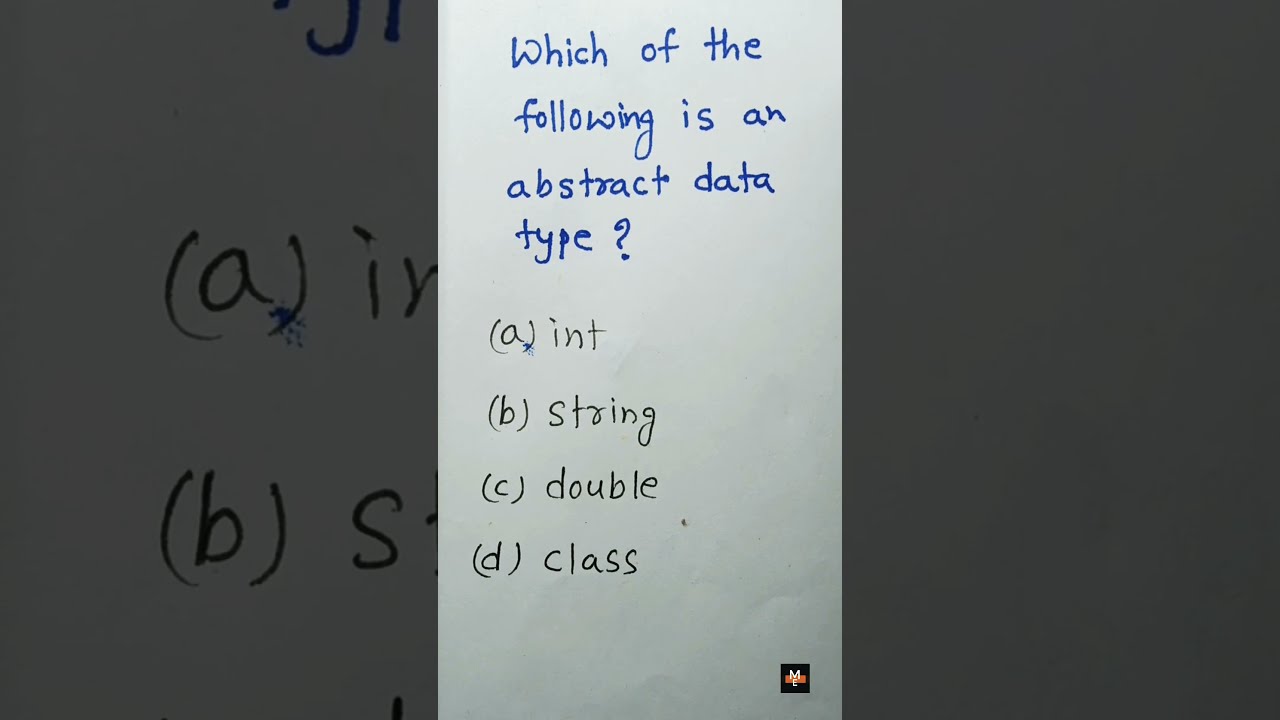 Which of the
following is an
abstract data
type ?
(a) int
(b) string
(c) double
(d) class
M
E